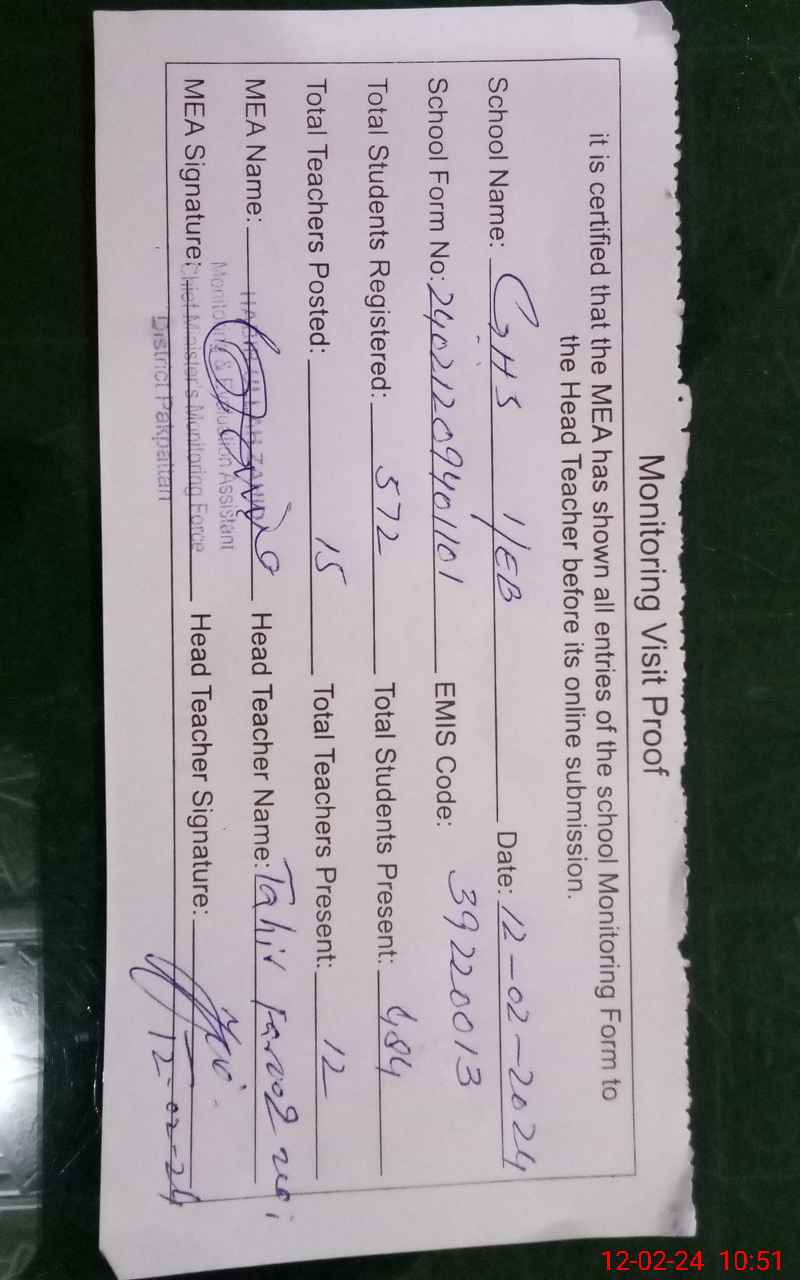 Monitoring Visit Proof
it is certified that the MEA has shown all entries of the school Monitoring Form to
the Head Teacher before its online submission.
School Name: GHS 1/EB Date: 12-02-2024
School Form No: 24021209401101 EMIS Code: 39220013
Total Students Registered: 572 Total Students Present: 484
Total Teachers Posted: 15 Total Teachers Present: 12
MEA Name: Head Teacher Name: Tahir Farooq
Monitoring & Evaluation Assistant
MEA Signature: Chief Minister's Monitoring Force Head Teacher Signature:
District Pakpattan
12-02-24
12-02-24 10:51